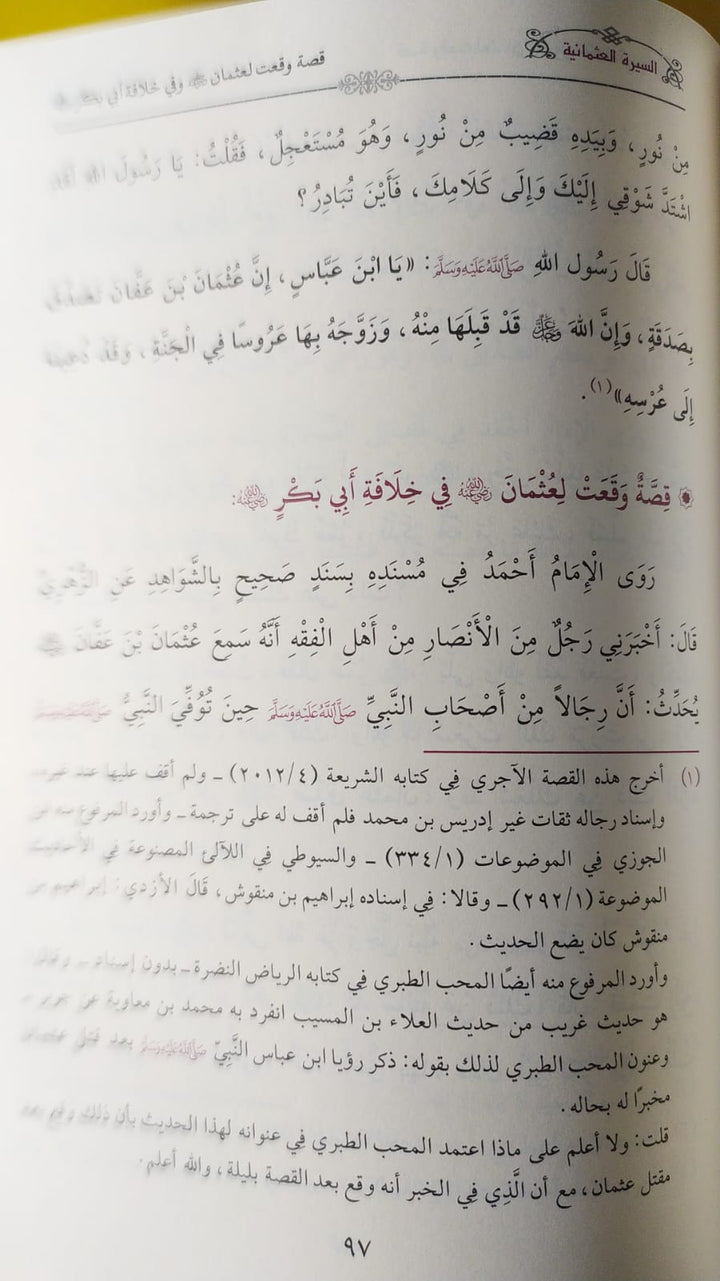 السيرة العثمانية
قصة وقعت لعثمان ﵁ وفي خلافة أبي بكر
مِنْ نُورٍ، وَبِيَدِهِ قَضِيبٌ مِنْ نُورٍ، وَهُوَ مُسْتَعْجِلٌ، فَقُلْتُ: يَا رَسُولَ اللهِ
اشْتَدَّ شَوْقِي إِلَيْكَ وَإِلَى كَلَامِكَ، فَأَيْنَ تُبَادِرُ؟
قَالَ رَسُول اللهِ ﷺ: «يَا ابْنَ عَبَّاسٍ، إِنَّ عُثْمَانَ بْنَ عَفَّانَ تَصَدَّقَ
بِصَدَقَةٍ، وَإِنَّ اللهَ ﷿ قَدْ قَبِلَهَا مِنْهُ، وَزَوَّجَهُ بِهَا عَرُوسًا فِي الْجَنَّةِ، وَقَدْ
إِلَى عُرْسِهِ»(١).
قِصَّةٌ وَقَعَتْ لِعُثْمَانَ ﵁ فِي خِلَافَةِ أَبِي بَكْرٍ ﵁:
رَوَى الْإِمَامُ أَحْمَدُ فِي مُسْنَدِهِ بِسَنَدٍ صَحِيحٍ بِالشَّوَاهِدِ عَنِ الزُّهْرِيِّ
قَالَ: أَخْبَرَنِي رَجُلٌ مِنَ الْأَنْصَارِ مِنْ أَهْلِ الْفِقْهِ أَنَّهُ سَمِعَ عُثْمَانَ بْنَ عَفَّانَ ﵁
يُحَدِّثُ: أَنَّ رِجَالاً مِنْ أَصْحَابِ النَّبِيِّ ﷺ حِينَ تُوُفِّيَ النَّبِيُّ ﷺ
(١) أخرج هذه القصة الآجري فِي كتابه الشريعة (٢٠١٢/٤) ـ ولم أقف عليها عند غيره،
وإسناد رجاله ثقات غير إدريس بن محمد فلم أقف له على ترجمة ـ وأورد المرفوع منه ابن
الجوزي فِي الموضوعات (٣٣٤/١) ـ والسيوطي فِي اللآلئ المصنوعة فِي الأحاديث
الموضوعة (٢٩٢/١) ـ وقالا: فِي إسناده إبراهيم بن منقوش، قَالَ الأزدي: إبراهيم بن
منقوش كان يضع الحديث.
وأورد المرفوع منه أيضًا المحب الطبري فِي كتابه الرياض النضرة ـ بدون إسناد ـ وقال:
هو حديث غريب من حديث العلاء بن المسيب انفرد به محمد بن معاوية عن
وعنون المحب الطبري لذلك بقوله: ذكر رؤيا ابن عباس النَّبِيّ ﷺ بعد قتل عثمان
مخبرًا له بحاله.
قلت: ولا أعلم على ماذا اعتمد المحب الطبري فِي عنوانه لهذا الحديث بأن ذلك وقع بعد
مقتل عثمان، مع أن الَّذِي فِي الخبر أنه وقع بعد القصة بليلة، والله أعلم.
٩٧